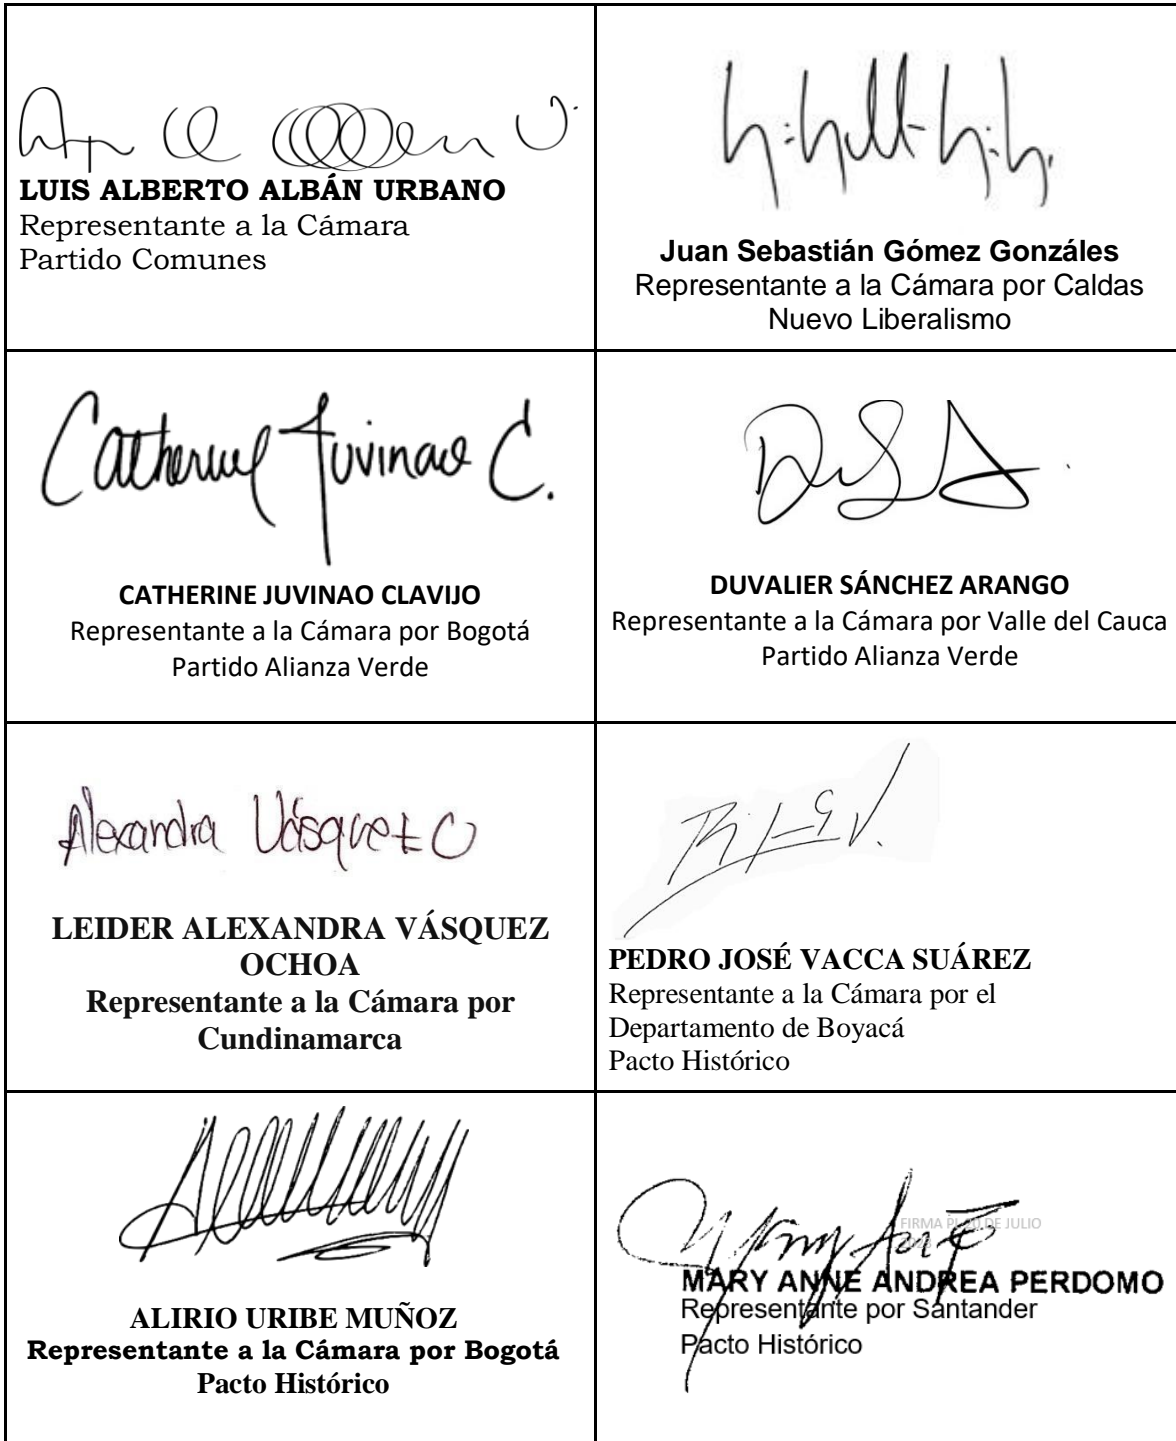 LUIS ALBERTO ALBÁN URBANO
Representante a la Cámara
Partido Comunes
Juan Sebastián Gómez Gonzáles
Representante a la Cámara por Caldas
Nuevo Liberalismo
Catherine Juvinao C.
CATHERINE JUVINAO CLAVIJO
Representante a la Cámara por Bogotá
Partido Alianza Verde
DUVALIER SÁNCHEZ ARANGO
Representante a la Cámara por Valle del Cauca
Partido Alianza Verde
Alexandra Vásquez O
LEIDER ALEXANDRA VÁSQUEZ
OCHOA
Representante a la Cámara por
Cundinamarca
PEDRO JOSÉ VACCA SUÁREZ
Representante a la Cámara por el
Departamento de Boyacá
Pacto Histórico
ALIRIO URIBE MUÑOZ
Representante a la Cámara por Bogotá
Pacto Histórico
FIRMA PL 20 DE JULIO
MARY ANNE ANDREA PERDOMO
Representante por Santander
Pacto Histórico